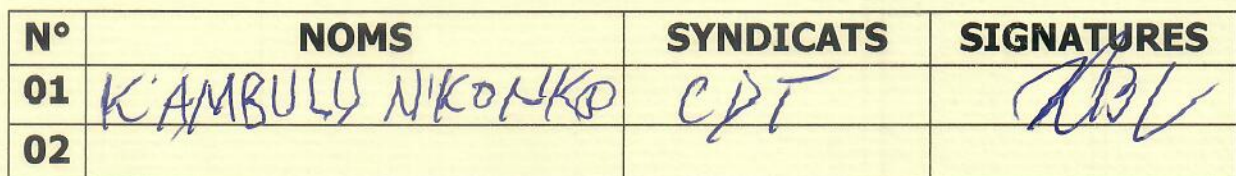 N° NOMS SYNDICATS SIGNATURES
01 KAMBULU N'KONKO CDT
02